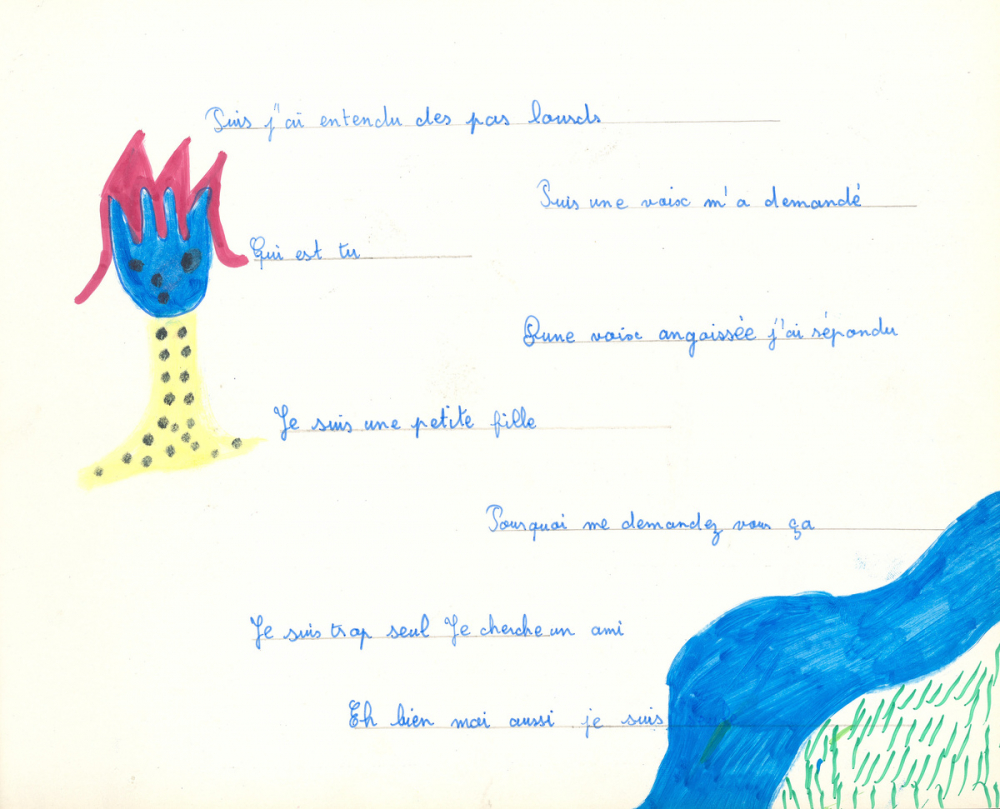 Puis j'ai entendu des pas lourds
Puis une voix m'a demandé
Qui est tu
D'une voix angoissée j'ai répondu
Je suis une petite fille
Pourquoi me demandez vous ça
Je suis trop seul Je cherche un ami
Eh bien moi aussi je suis